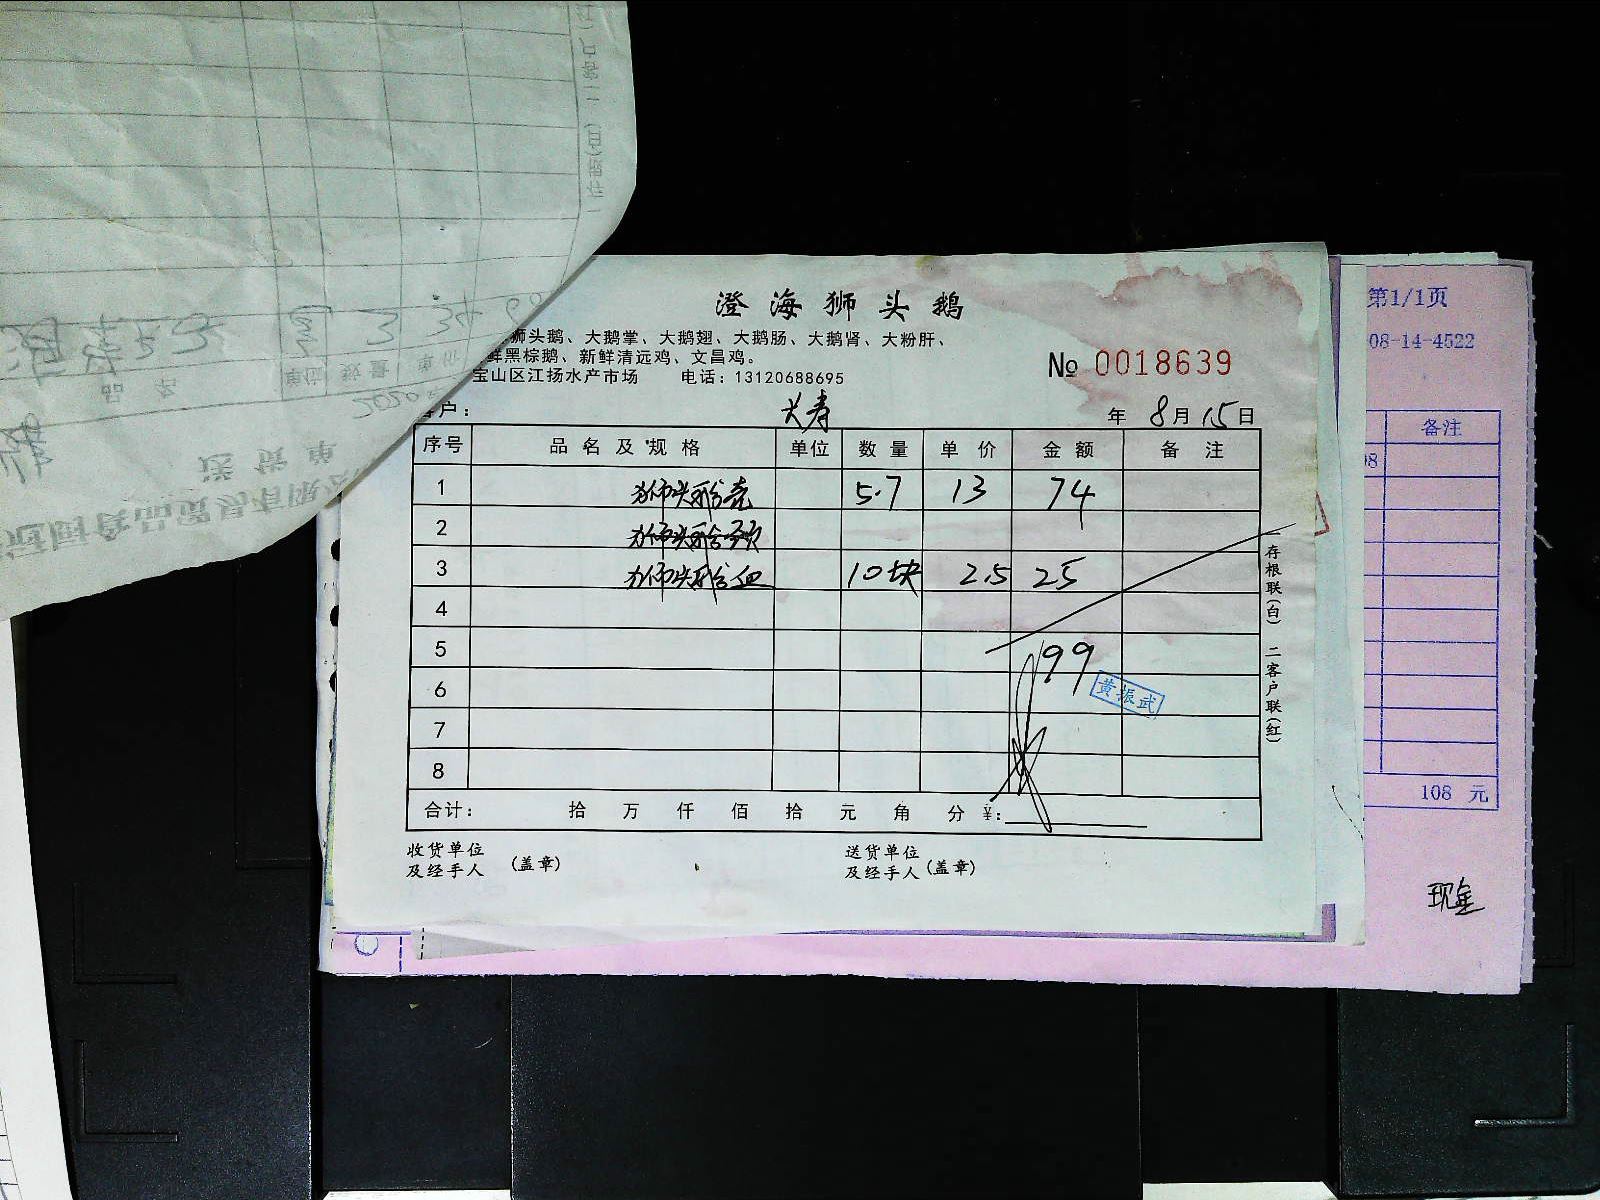 澄海狮头鹅
狮头鹅、大鹅掌、大鹅翅、大鹅肠、大鹅肾、大粉肝、
鲜黑棕鹅、新鲜清远鸡、文昌鸡。
宝山区江扬水产市场 电话：13120688695
№ 0018639
客户： 长寿 年 8月15日
序号 品名及规格 单位 数量 单价 金额 备注
1 狮头鹅壳 5.7 13 74
2 狮头鹅头
3 狮头鹅血 10块 2.5 25
4
5 199
6 黄振武
7
8
合计： 拾 万 仟 佰 拾 元 角 分 ¥:
收货单位 及经手人 (盖章)
送货单位 及经手人 (盖章)
一存根联(白) 二客户联(红)
第1/1页
08-14-4522
备注
108 元
现金
送货单
品名 单位 数量 单价
2020